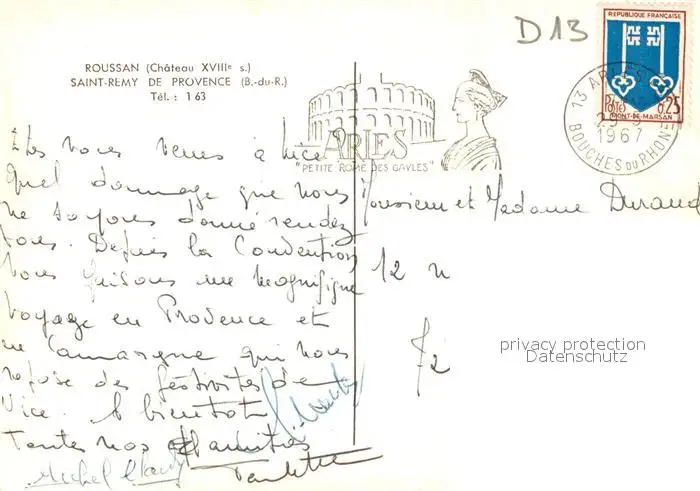 D13
ROUSSAN (Château XVIIIe s.)
SAINT-REMY DE PROVENCE (B.-du-R.)
Tél. : 1 63
REPUBLIQUE FRANÇAISE
POSTES
0,25
MONT-DE-MARSAN
13 ARLES
1967
BOUCHES DU RHONE
ARLES
"PETITE ROME DES GAULES"
vous venus à Nice
Quel dommage que nous
ne soyons donné rendez
vous. Depuis la Convention
nous faisons un magnifique
voyage en Provence et
en Camargue qui nous
repose des festivités de
Nice. A bientôt
Toutes nos amitiés
Paulette
Michel
Monsieur et Madame Durand
12 
privacy protection
Datenschutz